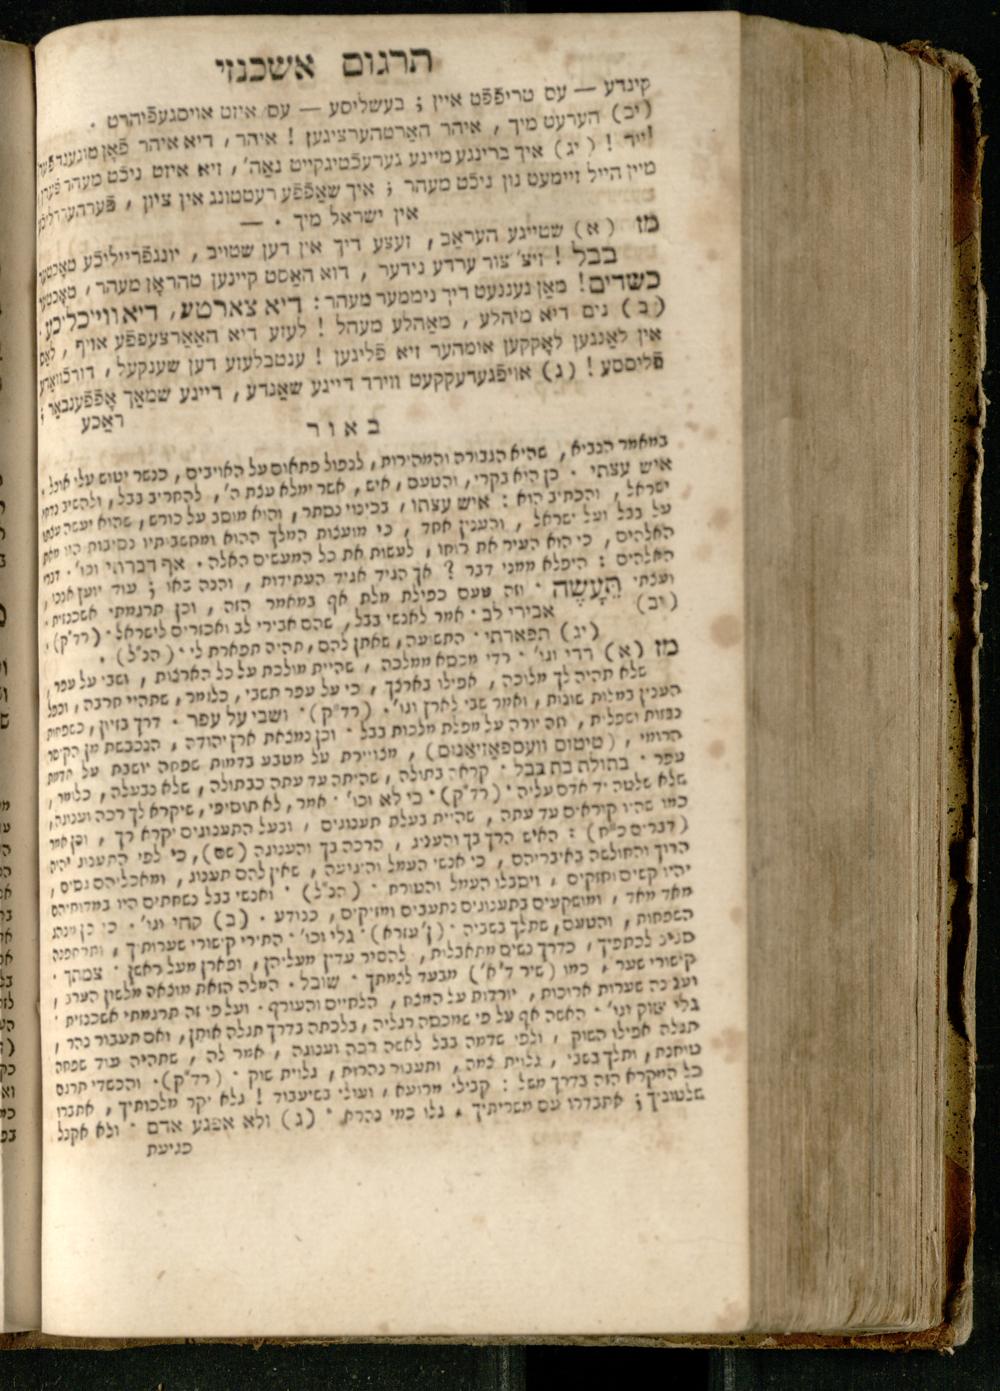 תרגום אשכנזי
קינדע — עס טריפֿפֿט איין ; בעשליסע — עס איזט אויסגעפֿיהרט .
(יב) הערעט מיך , איהר האַרטהערציגען ! איהר , דיא איהר פֿאָן טוגענד
זייד ! (יג) איך ברינגע מיינע גערעכֿטיגקייט נאַה' , זיא איזט ניכֿט מעהר פֿערן ,
מיין הייל זיימעט נון ניכֿט מעהר ; איך שאַפֿפֿע רעטטונג אין ציון ,
אין ישראל מיך . —
מז (א) שטייגע העראַב , זעצע דיך אין דען שטויב , יונגפֿרייליכֿע טאָכטער
בבל ! זיצ' צור ערדע נידער , דוא האַסט קיינען טהראָן מעהר , טאָכטער
כשדים! מאַן נעננעט דיך ניממער מעהר : דיא צארטע, דיא ווייכליכע .
(ב) נים דיא מיהלע , מאַהלע מעהל ! לעזע דיא האַאַרצעפפֿע אויף , לאַס
אין לאַנגען לאָקקען אומהער זיא פֿליגען ! ענטבלעזע דען שענקעל ,
פֿליססע ! (ג) אויפֿגעדעקקעט ווירד דיינע שאַנדע , דיינע שמאַך אָפֿפֿענבאַר ;
ראַכע
באור
במאמר הנביא , שהיא הגבורה והמהירות , לנפול פתאום על האויבים , כנשר יטוש עלי אוכל .
איש עצתי . כן היא בקרי , והטעם , איש , אשר ימלא עצת ה' , להחריב בבל , ולהשיב
ישראל , והכתיב הוא : איש עצתו , בכינוי נסתר , והוא מוסב על כורש , שהוא יעשה עצתו
על בבל ועל ישראל , והענין אחד , כי מועצות המלך ההוא ומחשבותיו נסיבות היו מאת
האלהים , כי הוא העיר את רוחו , לעשות את כל המעשים האלה . אף דברתי וכו' . דברי
האלהים : היפלא ממני דבר ? אך הגיד אגיד העתידות , והנה באו ; עוד יועץ אנכי ,
ועצתי הֵעָשֶׂה . וזה טעם כפילת מלת אף במאמר הזה , וכן תרגמתי אשכנזית .
(יב) אבירי לב . אמר לאנשי בבל , שהם אבירי לב ואכזרים לישראל . (רד"ק) .
(יג) תפארתי . התשועה , שאתן להם , תהיה תפארת לי . (הנ"ל) .
מז (א) רדי וגו' . רדי מכסא ממלכה , שהיית מולכת על כל הארצות , ושבי על עפר ,
שלא תהיה לך מלוכה , אפילו בארצך , כי על עפר תשבי , כלומר , שתהיי חרבה , וכפל
הענין במלות שונות , ואמר שבי לארץ וגו' . (רד"ק) . ושבי על עפר . דרך בזיון , כשפחות
נבזות ושפלות , וזה יורה על מפלת מלכות בבל . וכן נמצאת ארץ יהודה , הנכבשת מן הקיסר
הרומי , (טיטוס וועספּאַזיאַנוס) , מצויירת על מטבע בדמות שפחה יושבת על אדמת
עפר . בתולת בת בבל . קראה בתולה , שהיתה עד עתה כבתולה , שלא נבעלה , כלומר ,
שלא שלטה יד אדם עליה . (רד"ק) . כי לא וכו' . אמר , לא תוסיפי , שיקרא לך רכה וענוגה ,
כמו שהיו קוראים עד עתה , שהיית בעלת תענוגים , ובעל התענוגים יקרא רך , וכן אמר
(דברים כ"ח) : האיש הרך בך והענוג , הרכה בך והענוגה (שם) , כי לפי התענוג יהיה
הרוך והחולשה באיבריהם , כי אנשי העמל והיגיעה , שאין להם תענוג , ומאכליהם גסים ,
יהיו קשים וחזקים , ויסבלו העמל והטורח . (הנ"ל) . ואנשי בבל כשחתים היו במדותיהם
מאד מאד , ומושקעים בתענוגים נתעבים ומזיקים , כנודע . (ב) קחי וגו' . כי כן מנהג
השפחות , והטעם , שתלך בשביה . (ן' עזרא) . גלי וכו' . התירי קישורי שערותיך , ותרחפנה
סביב לכתפיך , כדרך נשים מתאבלות , להסיר עדין מעליהן , ופארן מעל ראשן . צמתך .
קישורי שער , כמו (שיר ד' א') מבעד לצמתך . שובל . המלה הזאת מוצאה מלשון הערבי ,
וענינה שערות ארוכות , יורדות על המצח , הלחיים והעורף . ועל פי זה תרגמתי אשכנזית .
גלי שוק וגו' . האשה אף על פי שמכסה רגליה , בלכתה בדרך תגלה אותן , ואם תעבור נהר ,
תגלה אפילו השוק , ולפי שדמה בבל לאשה רכה וענוגה , אמר לה , שתהיה עוד שפחה
טוחנת , ותלך בשבי , גלוית צמה , ותעבור נהרות , גלוית שוק . (רד"ק) . והכשדי תרגם
כל המקרא הזה בדרך משל : קבילי מרועא , ועולי בשיעבוד ! גלא יקר מלכותיך , אתברו
שלטוניך ; אתבדרו עם משריתיך , גלו כמי נהרא . (ג) ולא אפגע אדם . ולא אקבל
פגיעת